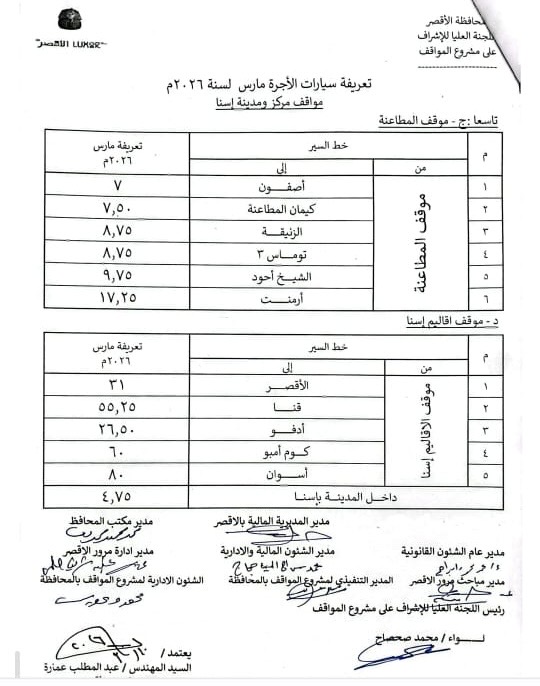 محافظة الأقصر
اللجنة العليا للإشراف
على مشروع المواقف
الأقصر LUXOR
تعريفة سيارات الأجرة مارس لسنة ٢٠٢٦م
مواقف مركز ومدينة إسنا
تاسعا :ج - موقف المطاعنة
م خط السير تعريفة مارس ٢٠٢٦م
من إلى
موقف المطاعنة
١ أصفون ٧
٢ كيمان المطاعنة ٧,٥٠
٣ الزنيقة ٨,٧٥
٤ توماس ٣ ٨,٧٥
٥ الشيخ أحود ٩,٧٥
٦ أرمنت ١٧,٢٥
د - موقف اقاليم إسنا
م خط السير تعريفة مارس ٢٠٢٦م
من إلى
موقف الاقاليم إسنا
١ الأقصر ٣١
٢ قنا ٥٥,٢٥
٣ أدفو ٢٦,٥٠
٤ كوم أمبو ٦٠
٥ أسوان ٨٠
داخل المدينة بإسنا ٤,٧٥
مدير المديرية المالية بالاقصر مدير مكتب المحافظ
مدير عام الشئون القانونية مدير الشئون المالية والادارية مدير ادارة مرور الاقصر
مدير مباحث مرور الاقصر المدير التنفيذي لمشروع المواقف بالمحافظة الشئون الادارية لمشروع المواقف بالمحافظة
رئيس اللجنة العليا للإشراف على مشروع المواقف
لواء/ محمد صحصاح يعتمد/
السيد المهندس/ عبد المطلب عمارة